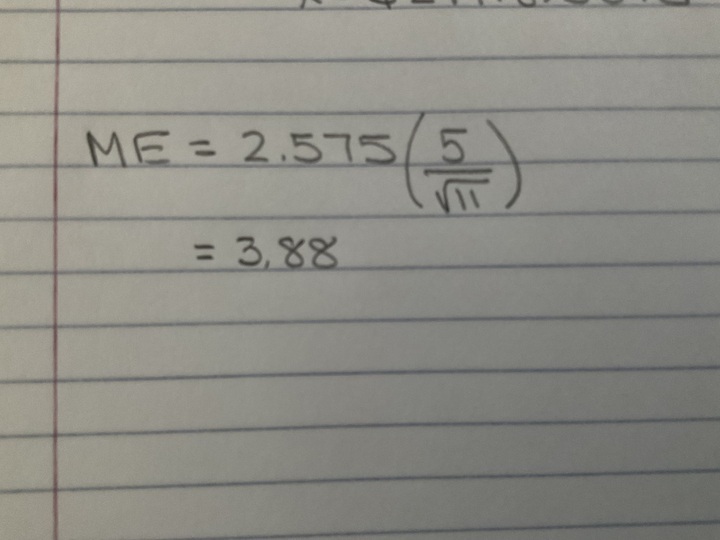 ME = 2.575(5/√11)
= 3.88